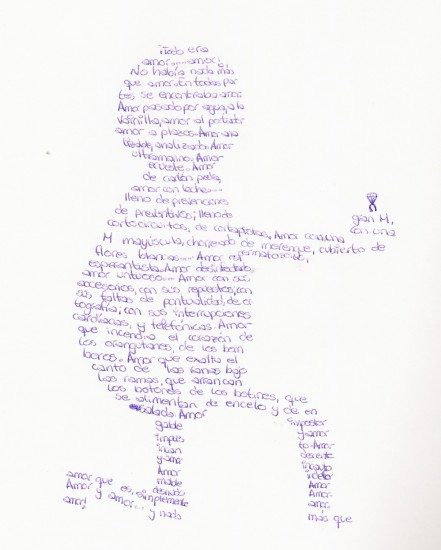 ¡Todo era
amor......amor!
No había nada más
que amor. En todas par
tes se encontraba amor.
Amor pasado por agua, a la
vainilla, amor al portador
amor a plazos. Amor ana
lizable, analizado. Amor
ultramarino. Amor
ecuestre. Amor
de cartón piedra,
amor con leche.....
lleno de prevenciones
de preventivos; lleno de
cortocircuitos, de cortapisas. Amor con una
gran M,
con una
M mayúscula, chorreado de merengue, cubierto de
flores blancas..... Amor espermatozoico,
esperantista. Amor desinfectado,
amor untuoso... Amor con sus
accesorios, con sus repuestos, con
sus faltas de puntualidad, de or
tografía; con sus interrupciones
cardíacas, y telefónicas. Amor
que incendia el corazón de
los orangutanes, de los bom
beros. Amor que exalta el
canto de las ranas bajo
las ramas, que arrancan
los botones de los botines, que
se alimentan de encelo y de en
salada. Amor
impostor
y amor
Amor
Amor
amor
más que
amor que es, simplemente
Amor y amor... y nada
amor!